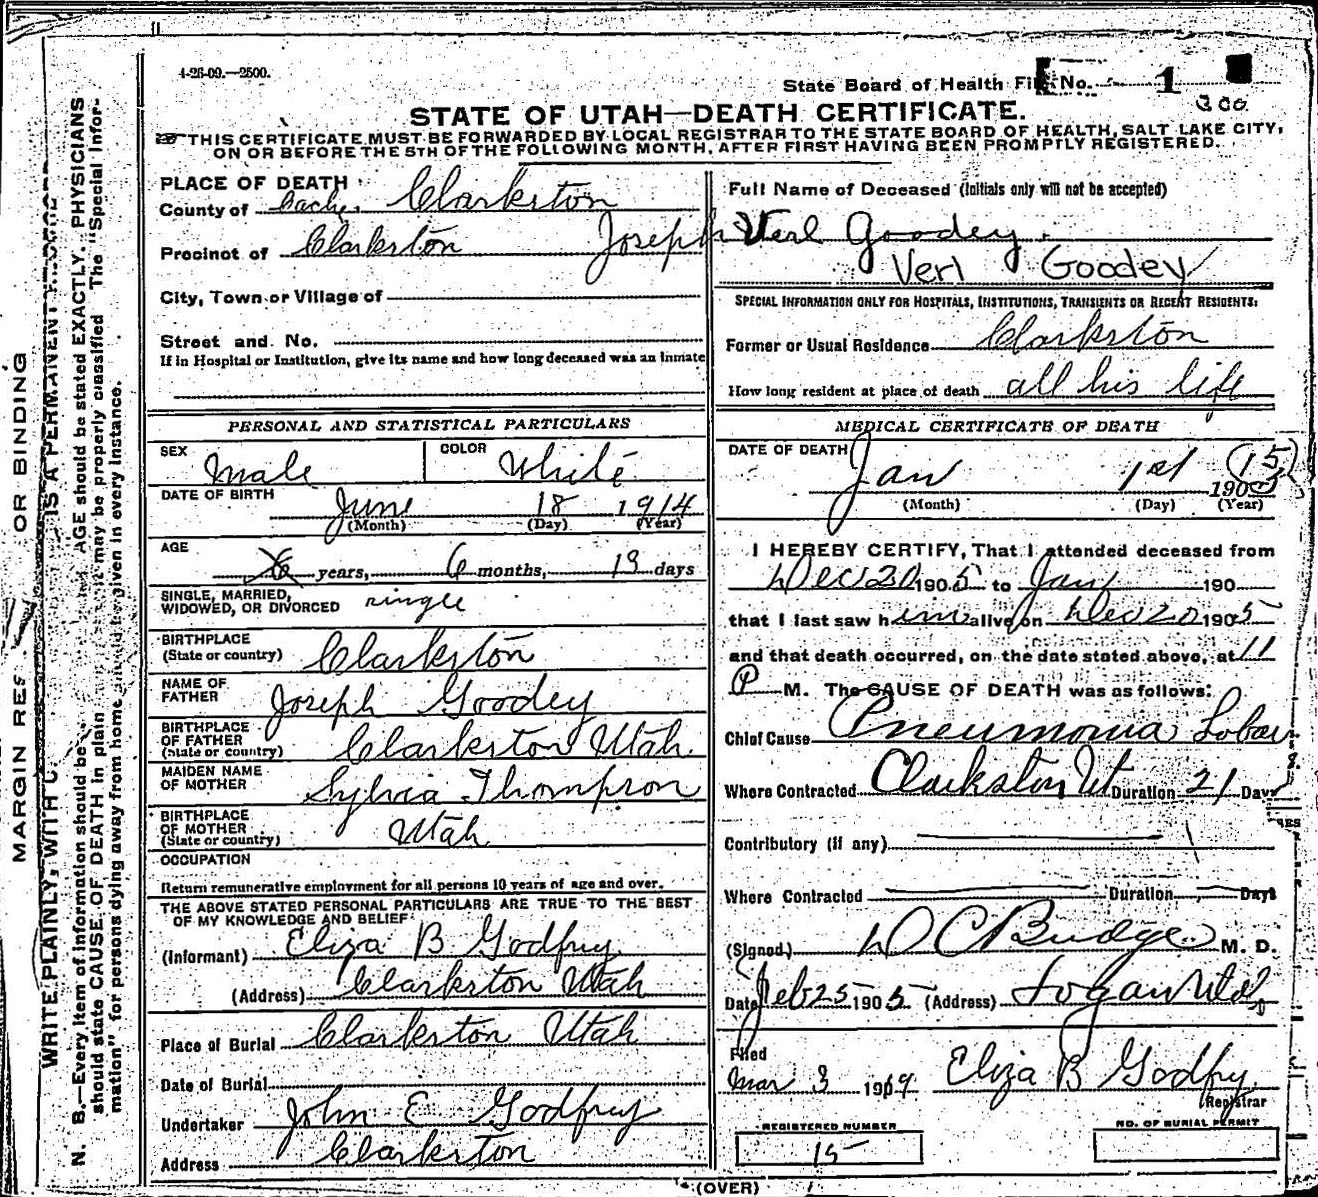 4-26-09.—2500.
State Board of Health File No. 1
300
STATE OF UTAH—DEATH CERTIFICATE.
THIS CERTIFICATE MUST BE FORWARDED BY LOCAL REGISTRAR TO THE STATE BOARD OF HEALTH, SALT LAKE CITY,
ON OR BEFORE THE 5TH OF THE FOLLOWING MONTH, AFTER FIRST HAVING BEEN PROMPTLY REGISTERED.
PLACE OF DEATH
County of Cache. Clarkston
Precinct of Clarkston
City, Town or Village of
Street and No.
If in Hospital or Institution, give its name and how long deceased was an inmate
Full Name of Deceased (Initials only will not be accepted)
Joseph Verl Goodey.
Verl Goodey
SPECIAL INFORMATION ONLY FOR HOSPITALS, INSTITUTIONS, TRANSIENTS OR RECENT RESIDENTS:
Former or Usual Residence Clarkston
How long resident at place of death all his life
PERSONAL AND STATISTICAL PARTICULARS
SEX Male COLOR White
DATE OF BIRTH June 18 1914
(Month) (Day) (Year)
AGE years, 6 months, 13 days
SINGLE, MARRIED,
WIDOWED, OR DIVORCED single
BIRTHPLACE
(State or country) Clarkston
NAME OF
FATHER Joseph Goodey
BIRTHPLACE
OF FATHER
(State or country) Clarkston Utah.
MAIDEN NAME
OF MOTHER Sylvia Thompson
BIRTHPLACE
OF MOTHER
(State or country) Utah
OCCUPATION
Return remunerative employment for all persons 10 years of age and over.
THE ABOVE STATED PERSONAL PARTICULARS ARE TRUE TO THE BEST
OF MY KNOWLEDGE AND BELIEF
(Informant) Eliza B Godfrey
(Address) Clarkston Utah
Place of Burial Clarkston Utah
Date of Burial
Undertaker John E Godfrey
Address Clarkston
MEDICAL CERTIFICATE OF DEATH
DATE OF DEATH Jan 1st 190 15
(Month) (Day) (Year)
I HEREBY CERTIFY, That I attended deceased from
Dec 20 190 5 to Jan 190
that I last saw him alive on Dec 20 190 5
and that death occurred, on the date stated above, at 11
P M. The CAUSE OF DEATH was as follows:
Chief Cause Pneumonia Lobar
Where Contracted Clarkston Ut Duration 21 Days
Contributory (if any)
Where Contracted Duration Days
(Signed) D C Budge M. D.
Date Feb 25 190 5 (Address) Logan Utah
Filed
Mar 3 19 Eliza B Godfrey
Registrar
REGISTERED NUMBER
15
NO. OF BURIAL PERMIT
(OVER)
MARGIN RES OR BINDING
WRITE PLAINLY, WITH IS A PERMANENT
N. B.—Every item of information should be AGE should be stated EXACTLY. PHYSICIANS
should state CAUSE OF DEATH in plain it may be properly classified The "Special Infor-
mation" for persons dying away from home given in every instance.